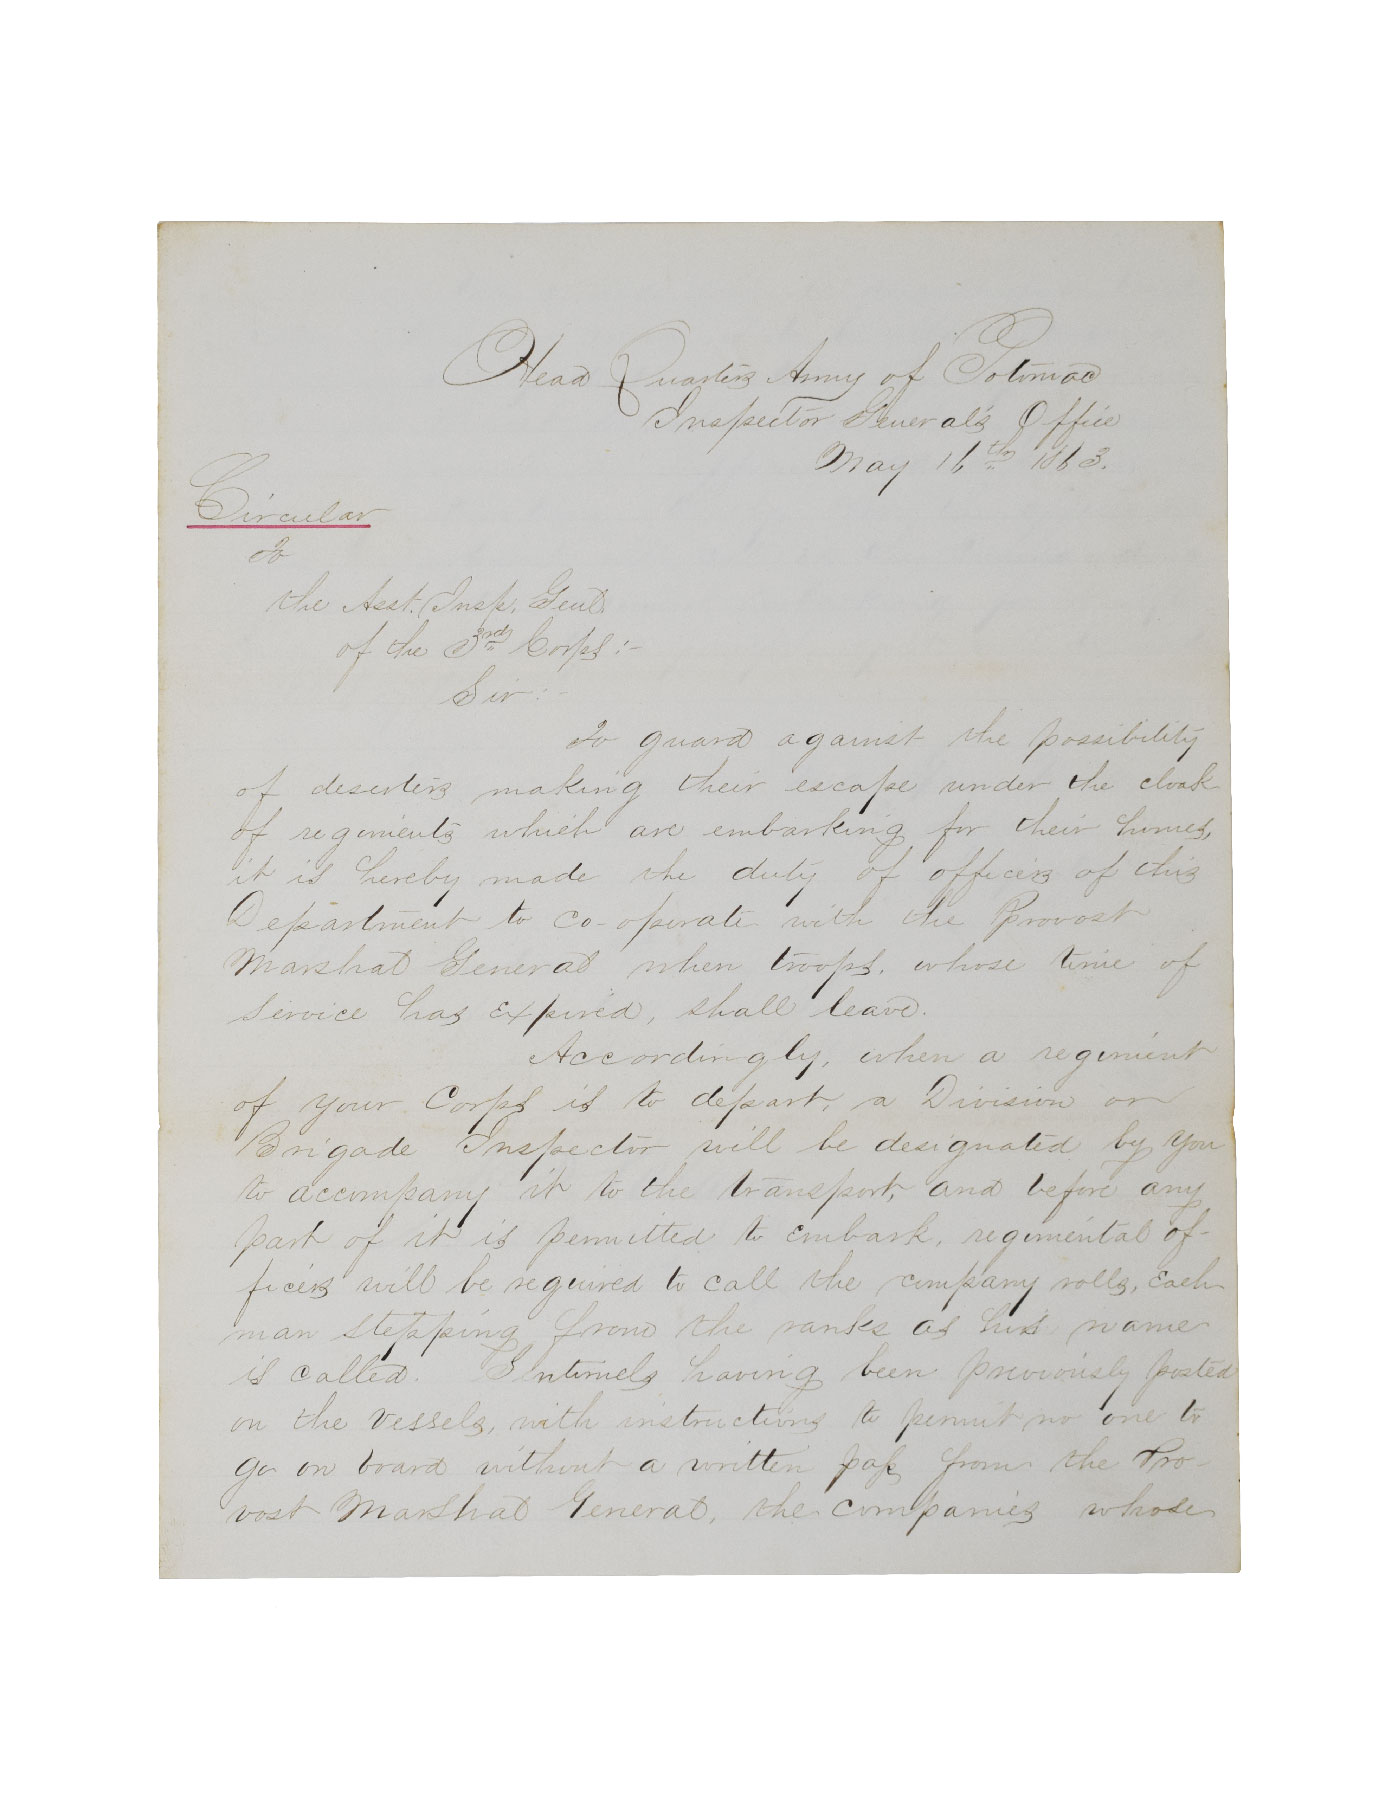 Head Quarters Army of Potomac
Inspector General's Office
May 16th 1863.
Circular
To
the Asst. Insp. Genl.
of the 3rd Corps:-
Sir:-
To guard against the possibility
of deserters making their escape under the cloak
of regiments which are embarking for their homes,
it is hereby made the duty of officers of this
Department to co-operate with the Provost
Marshal General when troops, whose time of
service has expired, shall leave.
Accordingly, when a regiment
of your Corps is to depart, a Division or
Brigade Inspector will be designated by you
to accompany it to the transport, and before any
part of it is permitted to embark, regimental of-
ficers will be required to call the company rolls, each
man stepping from the ranks as his name
is called. Sentinels having been previously posted
on the vessels, with instructions to permit no one to
go on board without a written pass from the Pro-
vost Marshal General, the companies whose